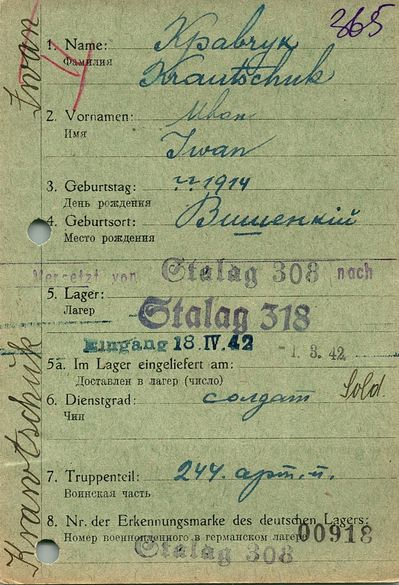 365
Iwan
1. Name: Кравчук
Фамилия Krautschuk
2. Vornamen: Иван
Имя
Iwan
3. Geburtstag: ??1914
День рождения
4. Geburtsort: Вишенкій
Место рождения
Versetzt von Stalag 308 nach
5. Lager: Stalag 318
Лагер
Eingang 18. IV. 42
-1. 3. 42
5a. Im Lager eingeliefert am:
Доставлен в лагер (число)
6. Dienstgrad: солдат Sold.
Чин
Krawtschuk
7. Truppenteil: 244. арт. п.
Воинская часть
8. Nr. der Erkennungsmarke des deutschen Lagers:
Номер военнопленного в германском лагере 00918
Stalag 308